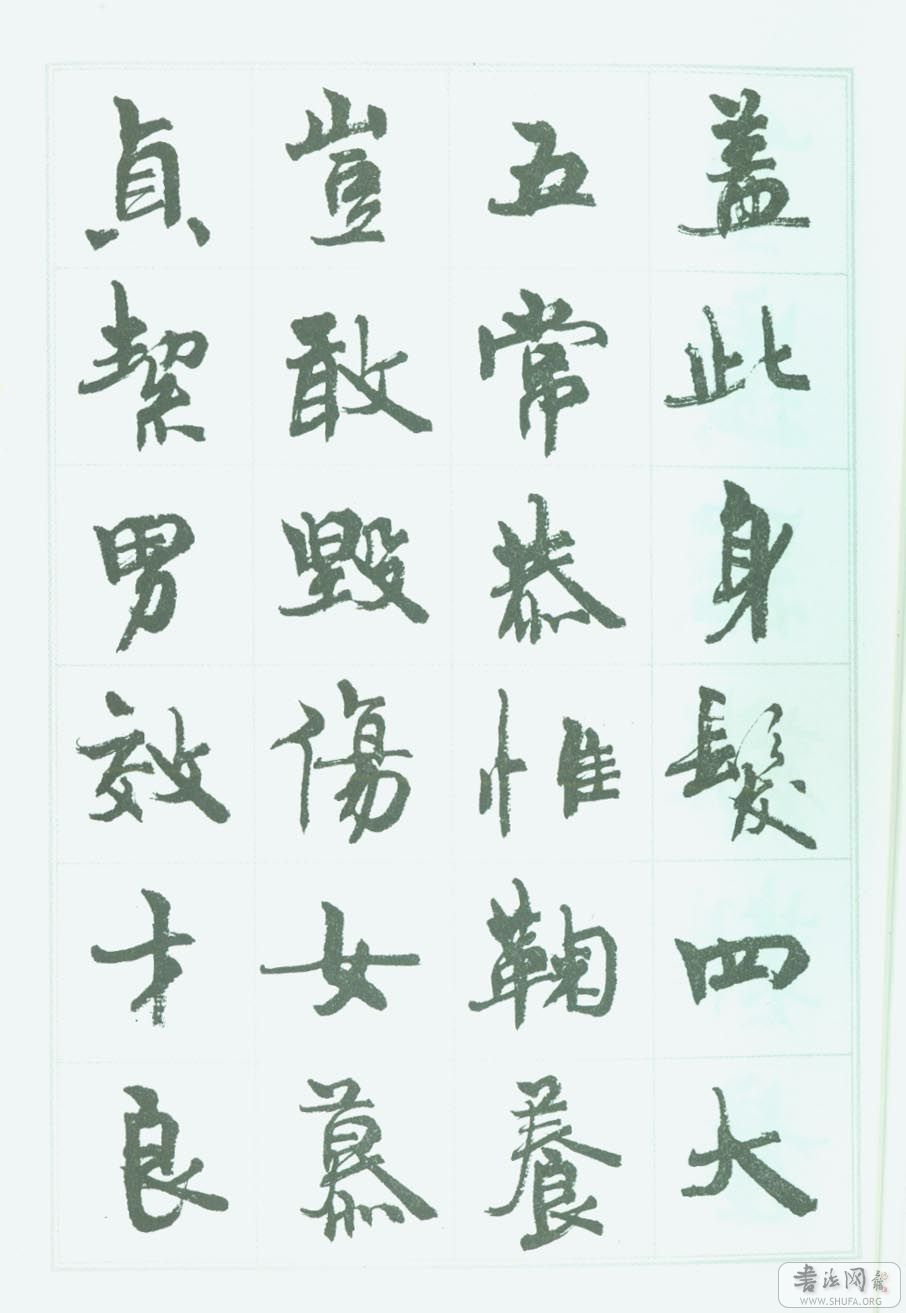 蓋此身髮四大
五常恭惟鞠養
豈敢毀傷女慕
貞絜男效才良
書法网
WWW.SHUFA.ORG